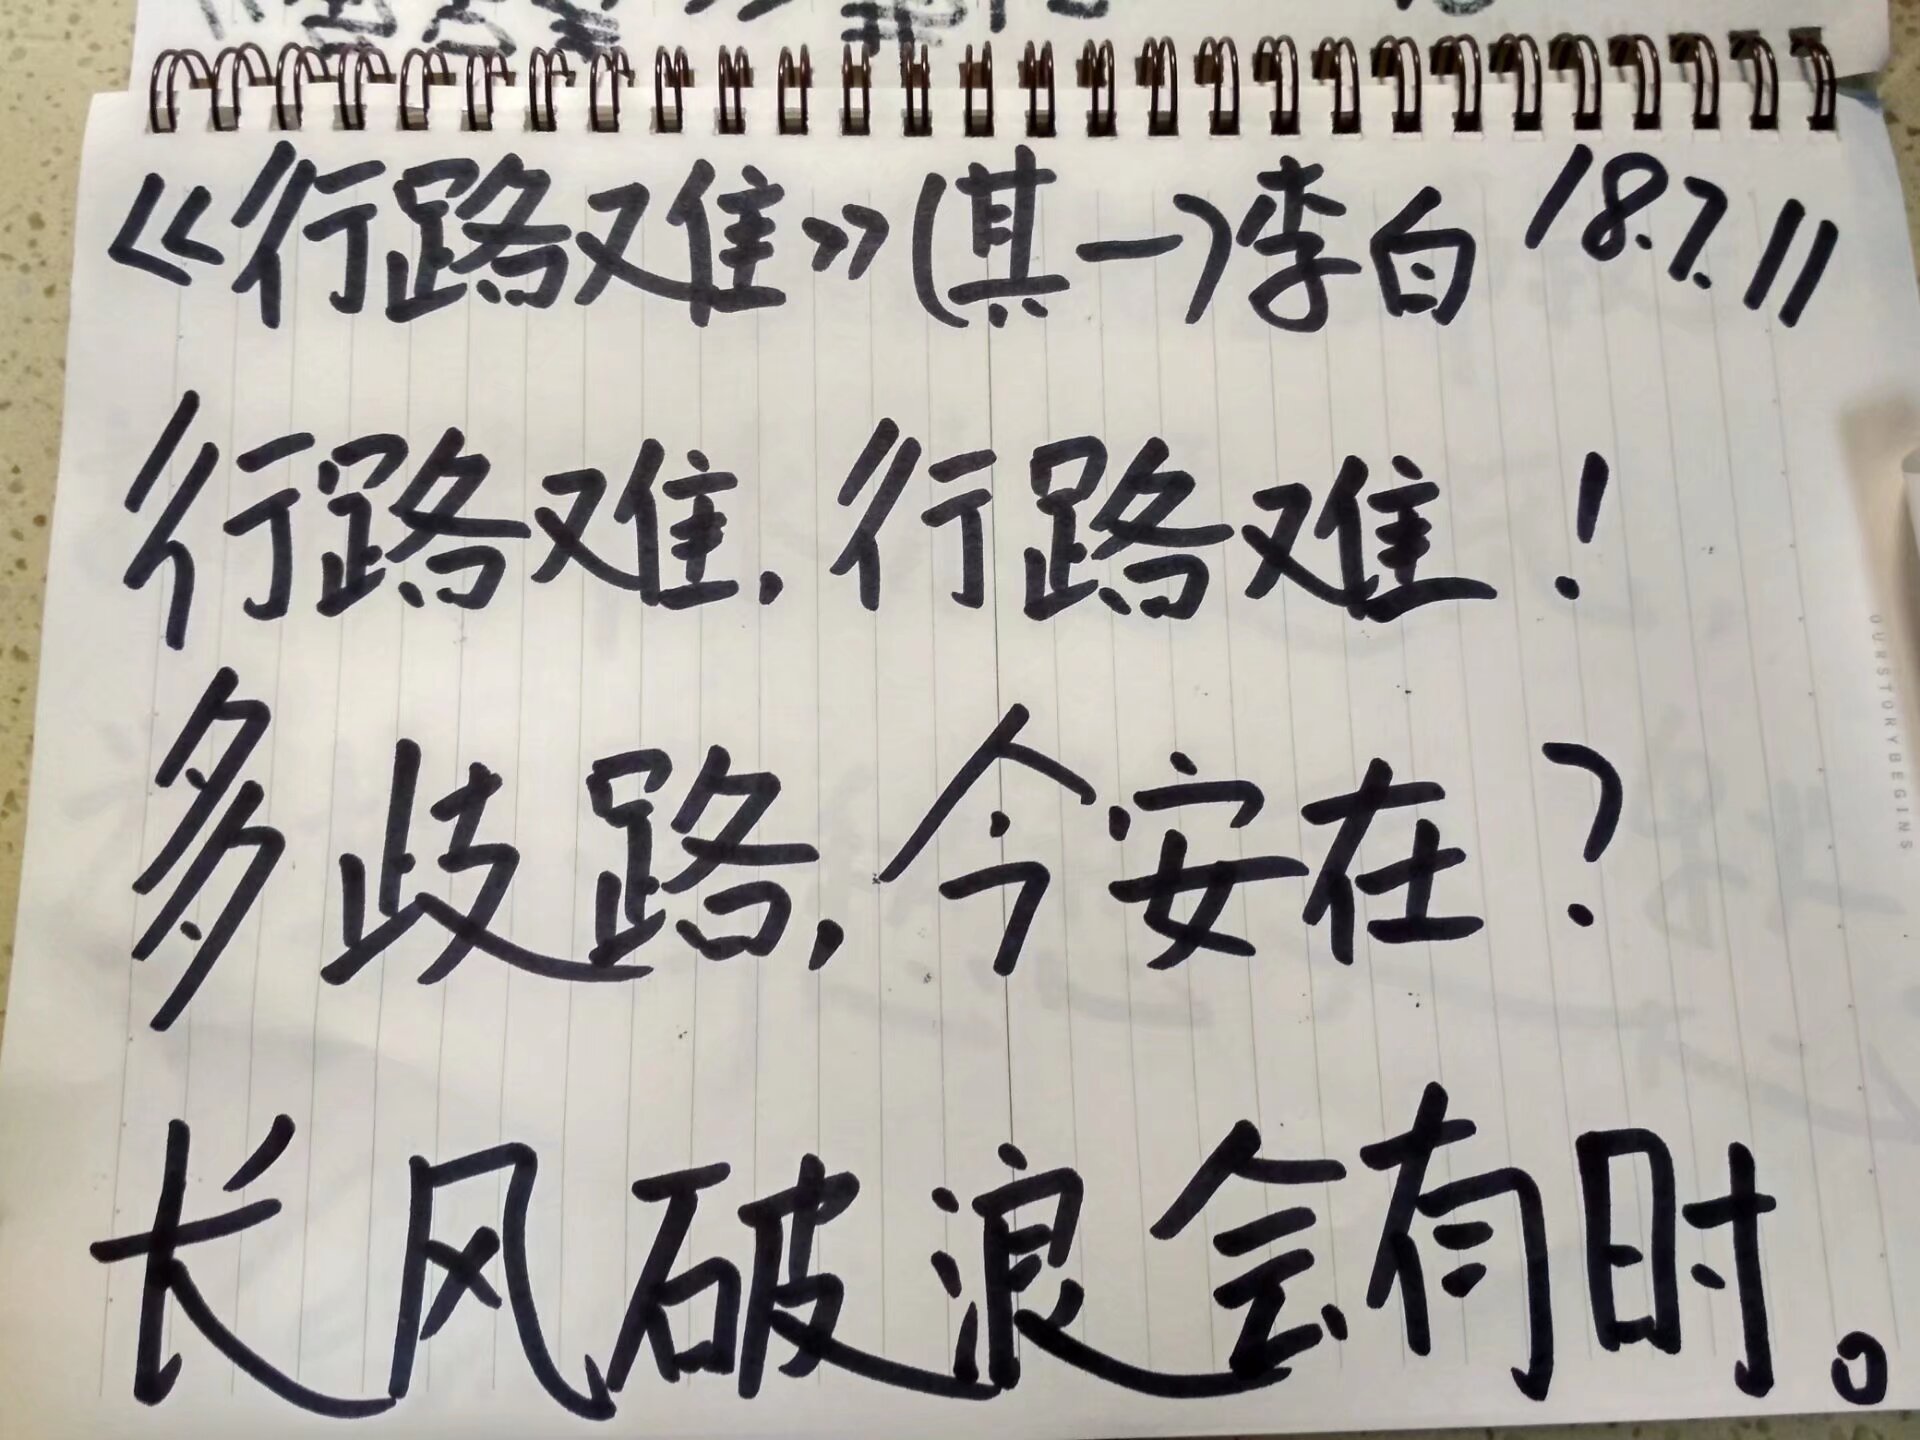 《行路难》(其一)李白 18.7.11
行路难,行路难!
多歧路,今安在?
长风破浪会有时。
OURSTORYBEGINS